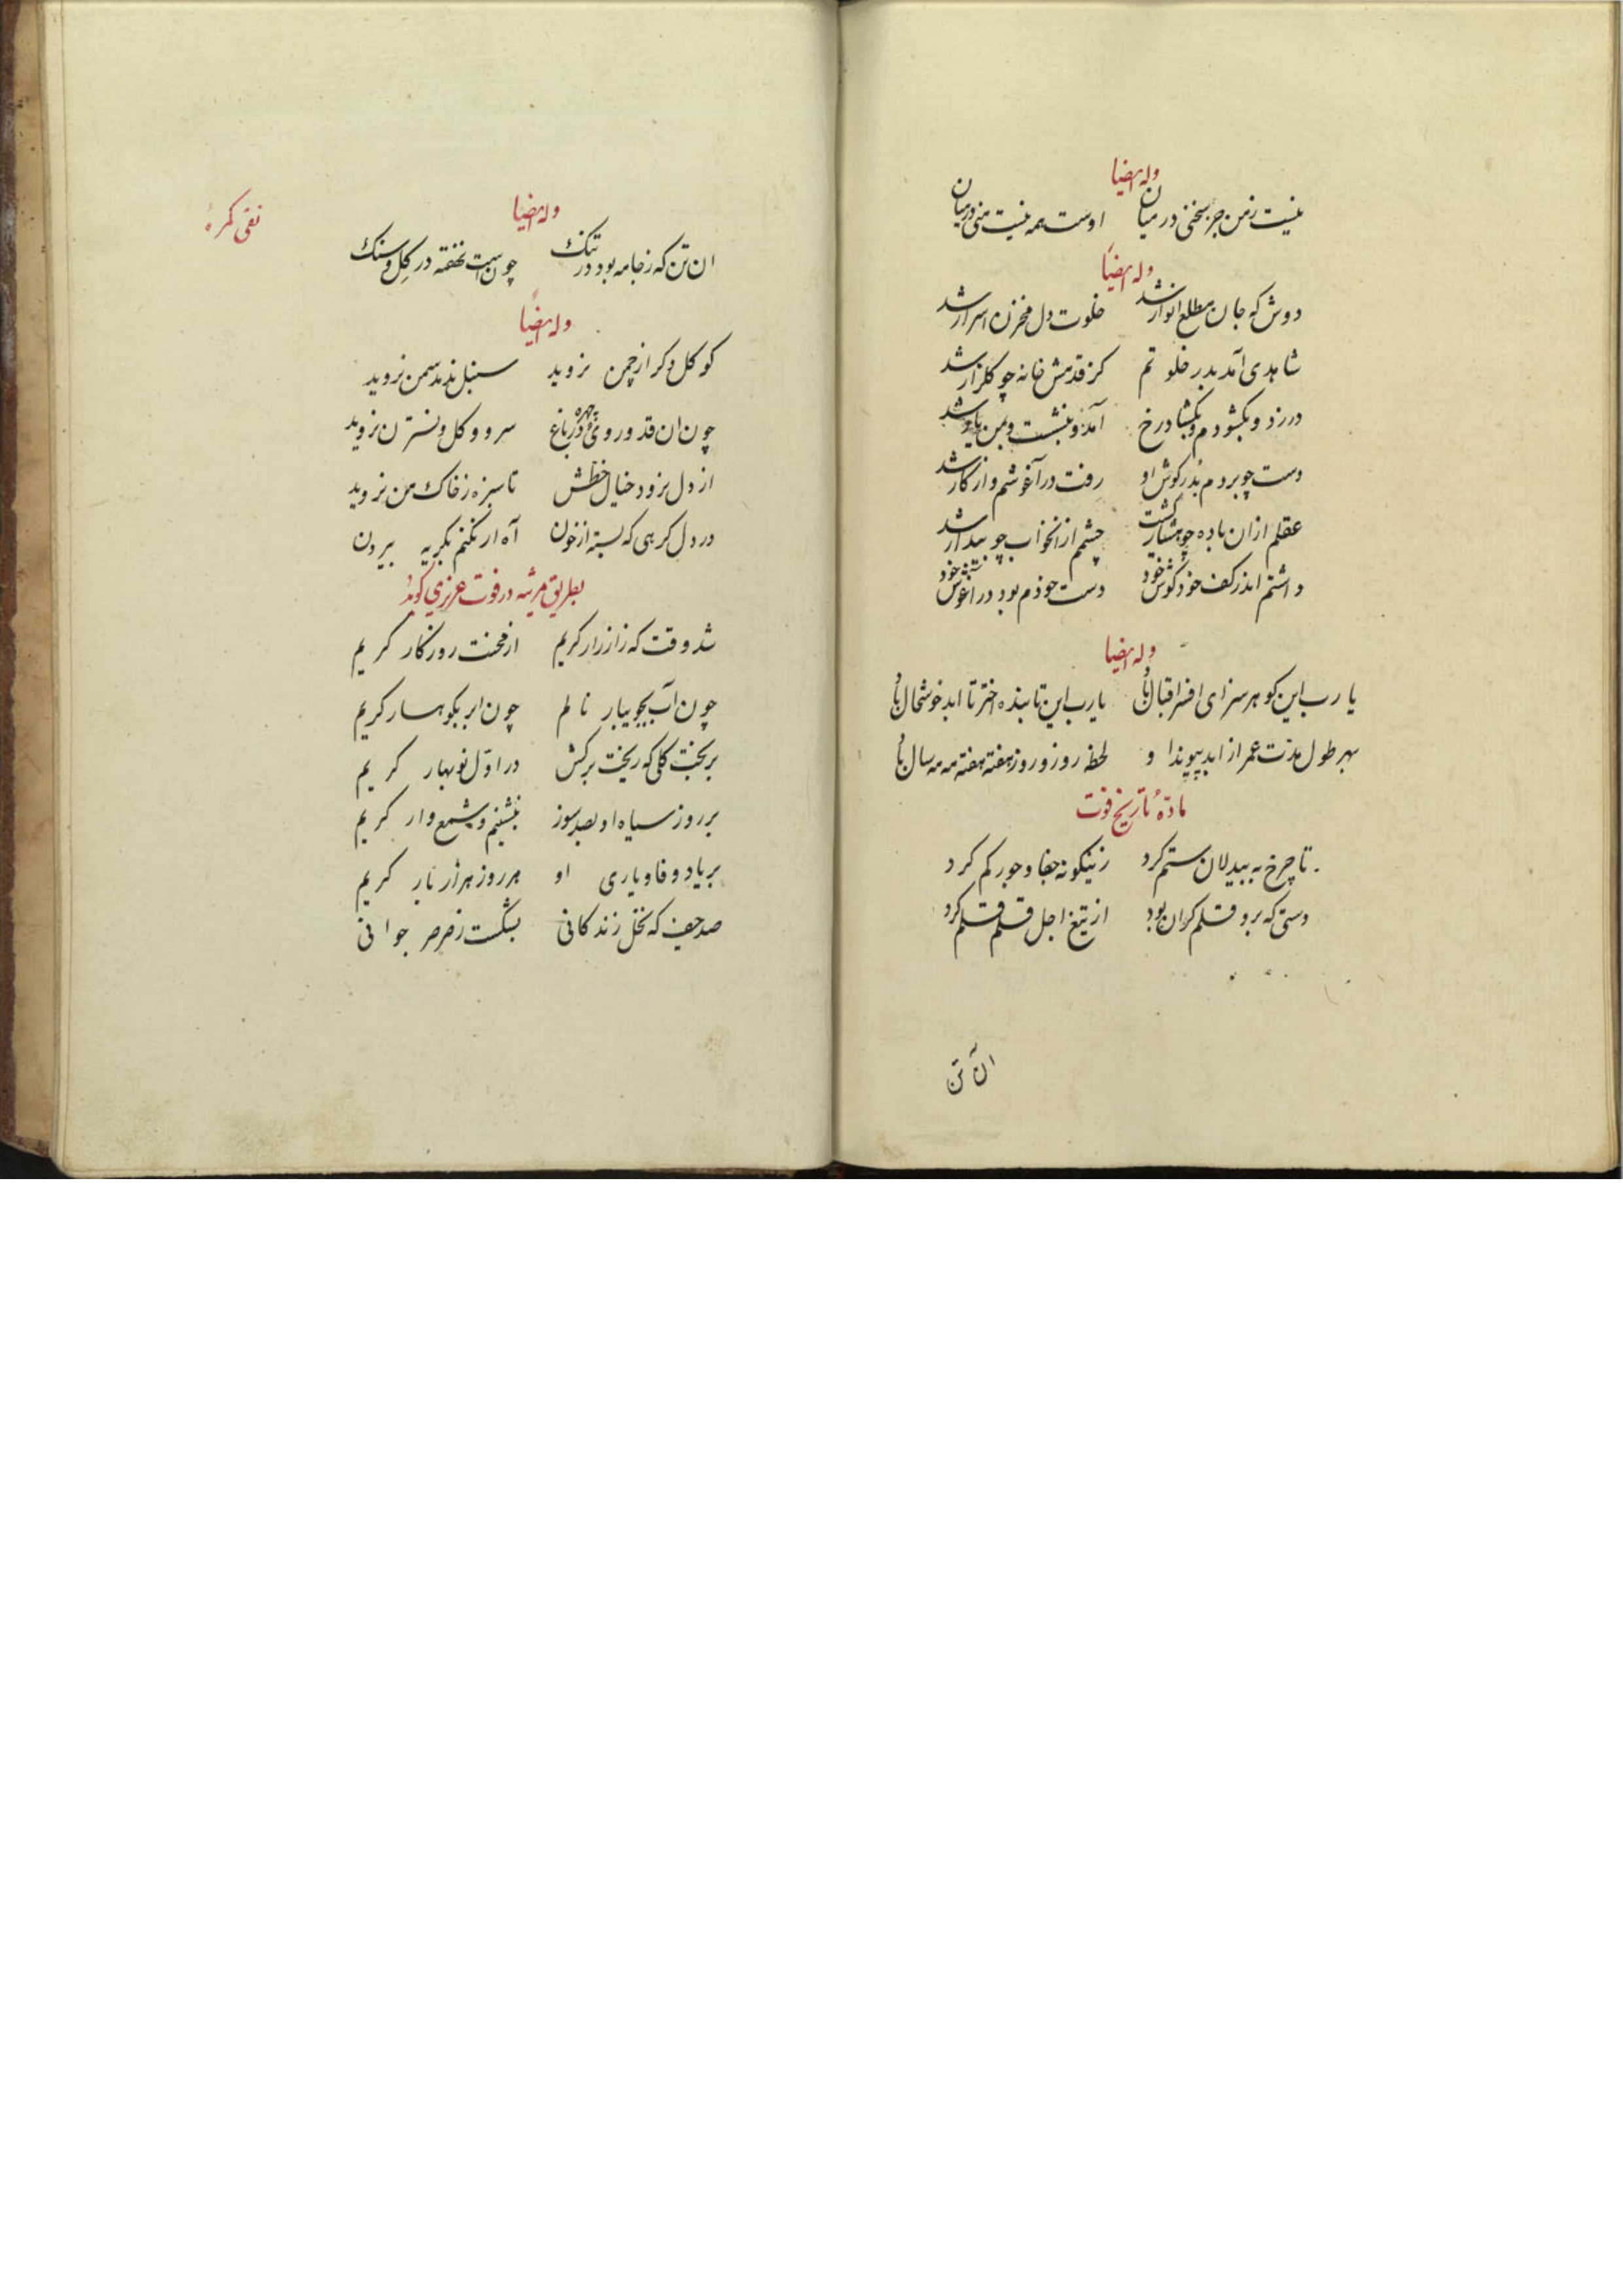 وله ایضا
نیست زمن جز سخنی در میان اوست همه نیست منی در میان
وله ایضا
دوش که جان مطلع انوار شد خلوت دل مخزن اسرار شد
شاهدی آمد بدر خلوتم کز قدمش خانه چو کلزار شد
در زد و بکشودم و بکشاد رخ آمد و بنشست و بمن یار شد
دست چو بردم بدر کوش او رفت در آغوشم و از کار شد
عقلم ازان باده چو هشیار کشت چشمم از انخواب چو بیدار شد
داشتم اندر کف خود کوش خود دست خودم بود در اغوش خود
وله ایضا
یا رب این کوهر سزای افسر اقبال باد یا رب این تابنده اختر تا ابد خوشحال باد
بهر طول مدت عمر از ابد پیوند او لحظه روز و روز هفته هفته مه مه سال باد
مادهٔ تاریخ فوت
تا چرخ به بیدلان ستم کرد زینکونه جفا و جور کم کرد
دستی که برو قلم کران بود از تیغ اجل قلم قلم کرد
ان تن
نقی کمرهٔ
وله ایضا
ان تن که زجامه بود در تنک چونست نهفته در کل و سنک
وله ایضا
کو کل دکر از چمن نروید سنبل ندمد سمن نروید
چون ان قد و روی و چهره در باغ سرو و کل و نسترن نروید
از دل نرود خیال خطش تا سبزه زخاک من نروید
در دل کرهی که بسته از خون آه ار نکنم بکریه بیرون
بطریق مرثیه در فوت عزیزی کوید
شد وقت که زار زار کریم از محنت روزکار کریم
چون آب بجویبار نالم چون ابر بکوهسار کریم
بر بخت کلی که ریخت برکش در اول نوبهار کریم
بر روز سیاه او بصد سوز بنشینم و شمع وار کریم
بر یاد وفا و یاری او هر روز هزار بار کریم
صد حیف که نخل زندکانی بشکست زصرصر جوانی